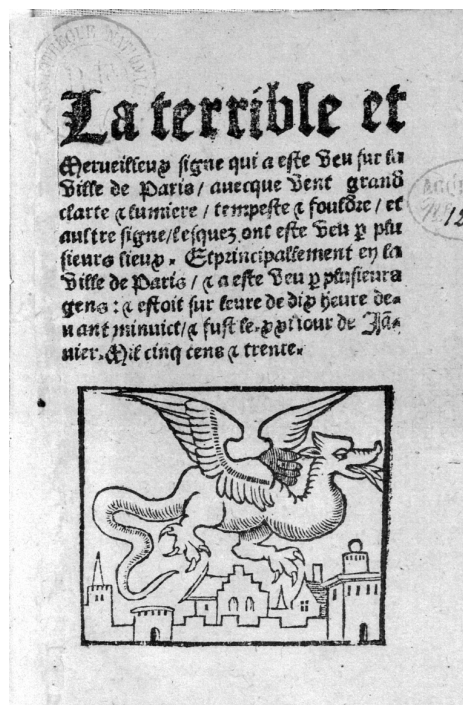 La terrible et
Merueilleux signe qui a este veu sur la
Ville de Paris / auecque vent grand
clarte ⁊ lumiere / tempeste ⁊ fouldre / et
aultre signe / lesquez ont este veu p̱ plu
sieurs lieux. Et principallement en la
ville de Paris / ⁊ a este veu p̱ plusieurs
gens: ⁊ estoit sur leure de dix heure de-
uant minuict / ⁊ fust le. xxi iour de Jā-
nier. Mil cinq cens ⁊ trente.